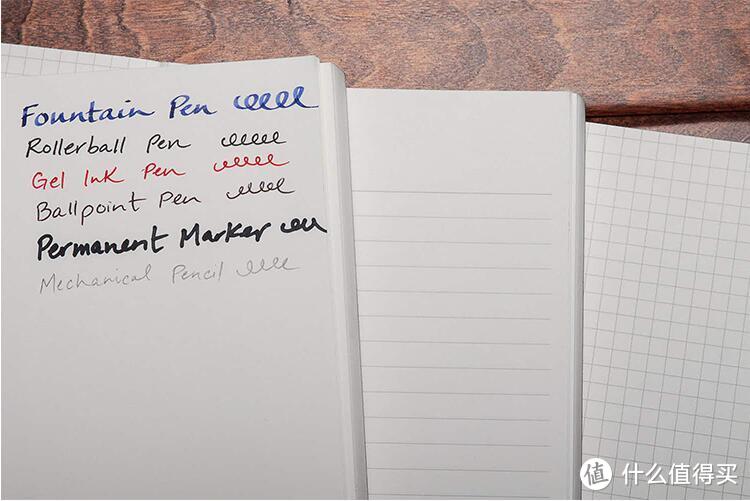 Fountain Pen
Rollerball Pen
Gel Ink Pen
Ballpoint Pen
Permanent Marker
Mechanical Pencil
值 什么值得买